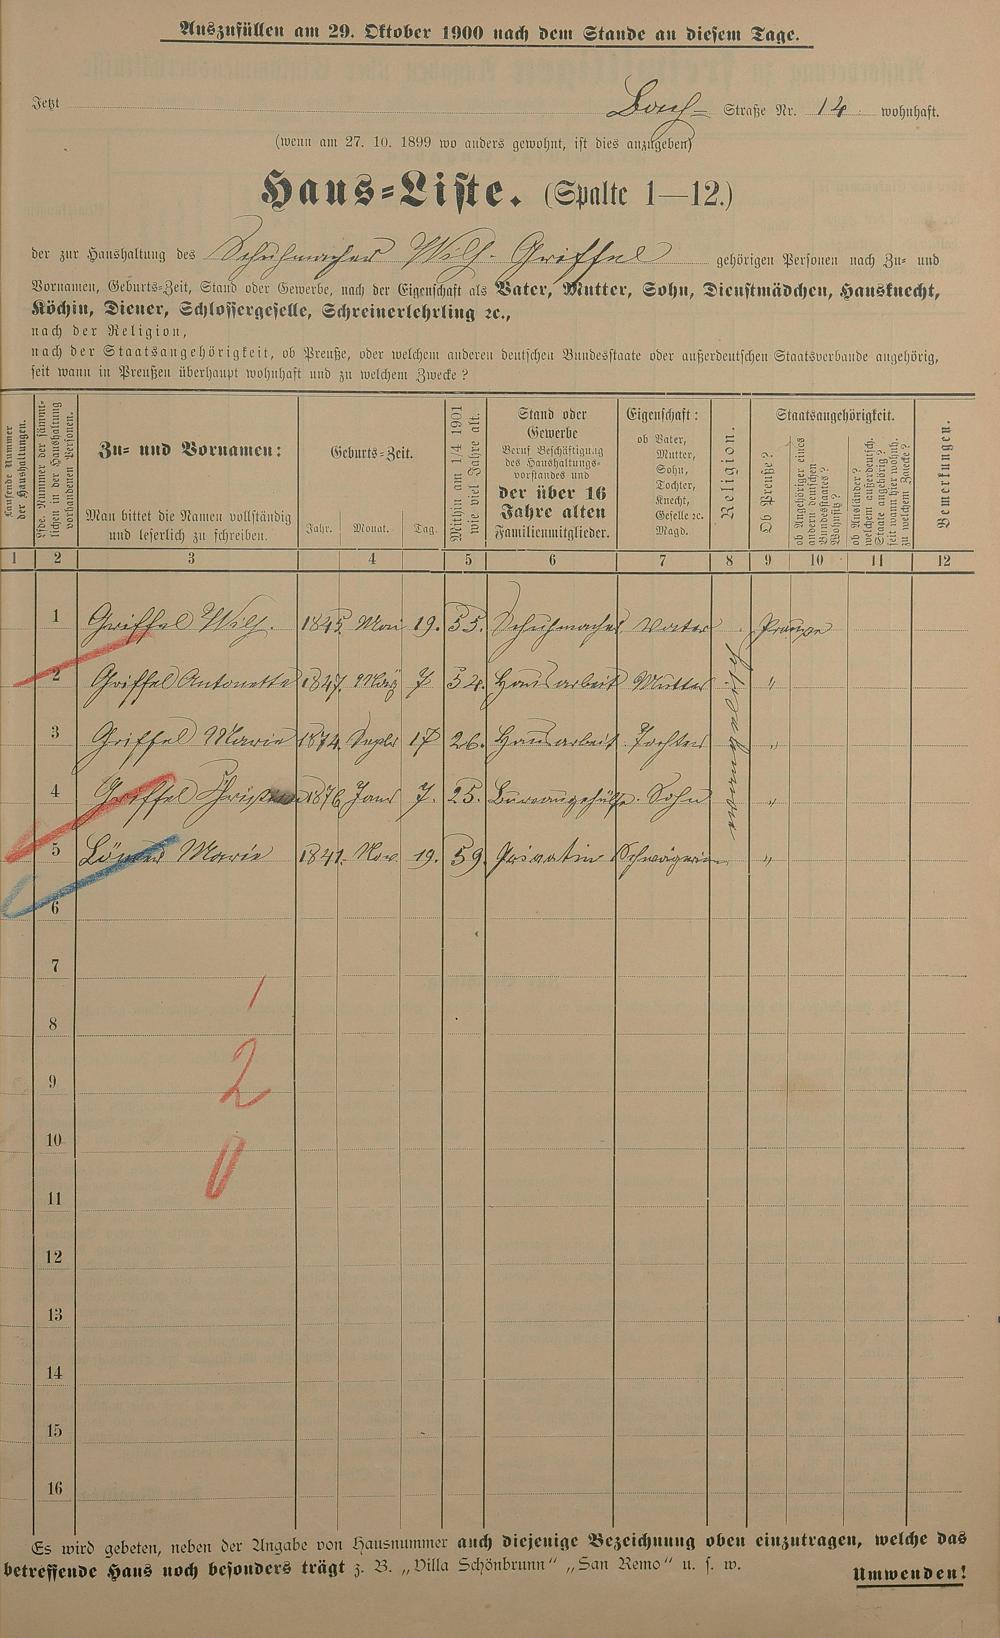 Auszufüllen am 29. Oktober 1900 nach dem Stande an diesem Tage.
Jetzt Bach= Straße Nr. 14 wohnhaft.
(wenn am 27. 10. 1899 wo anders gewohnt, ist dies anzugeben)
Haus=Liste. (Spalte 1—12.)
der zur Haushaltung des Schuhmacher Wilh. Griffel gehörigen Personen nach Zu= und
Vornamen, Geburts=Zeit, Stand oder Gewerbe, nach der Eigenschaft als Vater, Mutter, Sohn, Dienstmädchen, Hausknecht,
Köchin, Diener, Schlossergeselle, Schreinerlehrling ꝛc.,
nach der Religion,
nach der Staatsangehörigkeit, ob Preuße, oder welchem anderen deutschen Bundesstaate oder außerdeutschen Staatsverbande angehörig,
seit wann in Preußen überhaupt wohnhaft und zu welchem Zwecke?
Laufende Nummer
der Haushaltungen.
Lfde. Nummer der sämmt=
lichen in der Haushaltung
vorhandenen Personen.
Zu= und Vornamen:
Man bittet die Namen vollständig
und leserlich zu schreiben.
Geburts=Zeit.
Jahr. Monat. Tag.
Mithin am 1/4 1901
wie viel Jahre alt.
Stand oder
Gewerbe
Beruf Beschäftigung
des Haushaltungs=
vorstandes und
der über 16
Jahre alten
Familienmitglieder.
Eigenschaft:
ob Vater,
Mutter,
Sohn,
Tochter,
Knecht,
Geselle ꝛc.
Magd.
Religion.
Staatsangehörigkeit.
Ob Preuße?
ob Angehöriger eines
andern deutschen
Bundesstaates?
Wohnsitz?
ob Ausländer?
welchem außerdeutsch.
Staate angehörig?
seit wann hier wohnh.
zu welchem Zwecke?
Bemerkungen.
1 2 3 4 5 6 7 8 9 10 11 12
1 Griffel Wilh. 1845. Mai 19. 55. Schuhmacher Vater Preuße
2 Griffel Antonette 1847. März 7 54. Hausarbeit Mutter "
3 Griffel Marie 1874. Septr 17 26. Hausarbeit. Tochter "
4 Griffel 1876 Janr 7. 25. Bureaugehülfe. Sohn "
5 Marie 1841. Nov. 19. 59. Privatin Schwägerin "
6
7
1
8
2
9
10
0
11
12
13
14
15
16
Es wird gebeten, neben der Angabe von Hausnummer auch diejenige Bezeichnung oben einzutragen, welche das
betreffende Haus noch besonders trägt z. B. „Villa Schönbrunn" „San Remo" u. s. w.
Umwenden!